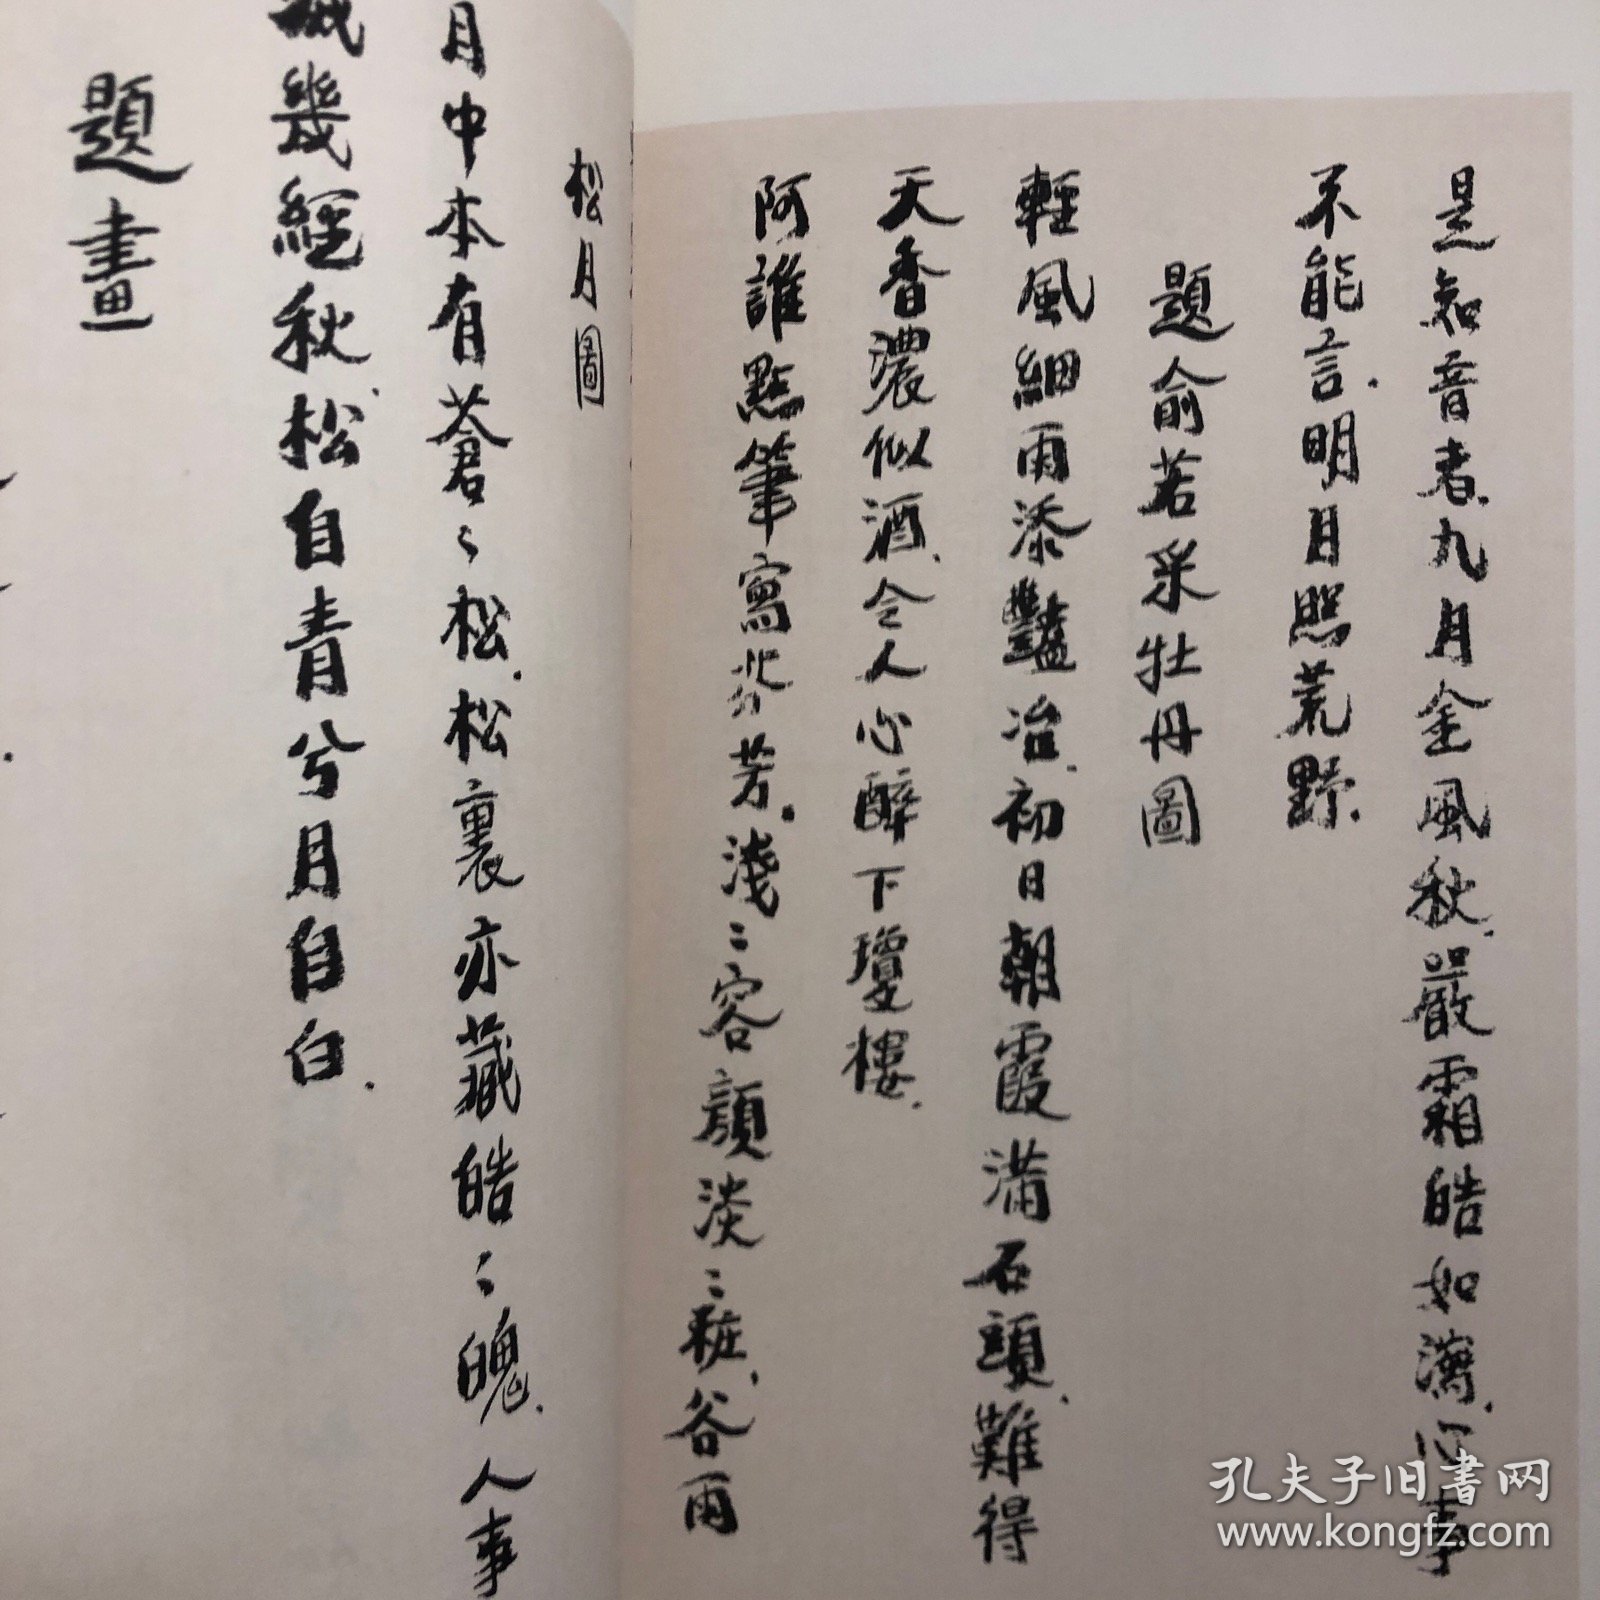 是知音者九月金風秋嚴霜皓如瀉心事
不能言明月照荒野
題俞若采牡丹圖
輕風細雨添豔冶初日朝霞滿石頭難得
天香濃似酒令人心醉下瓊樓
阿誰點筆寫芬芳淺〻容顏淡〻粧谷雨
松月圖
月中本有蒼〻松松裏亦藏皓〻魄人事
幾經秋松自青兮月自白
題畫
孔夫子旧書网
www.kongfz.com